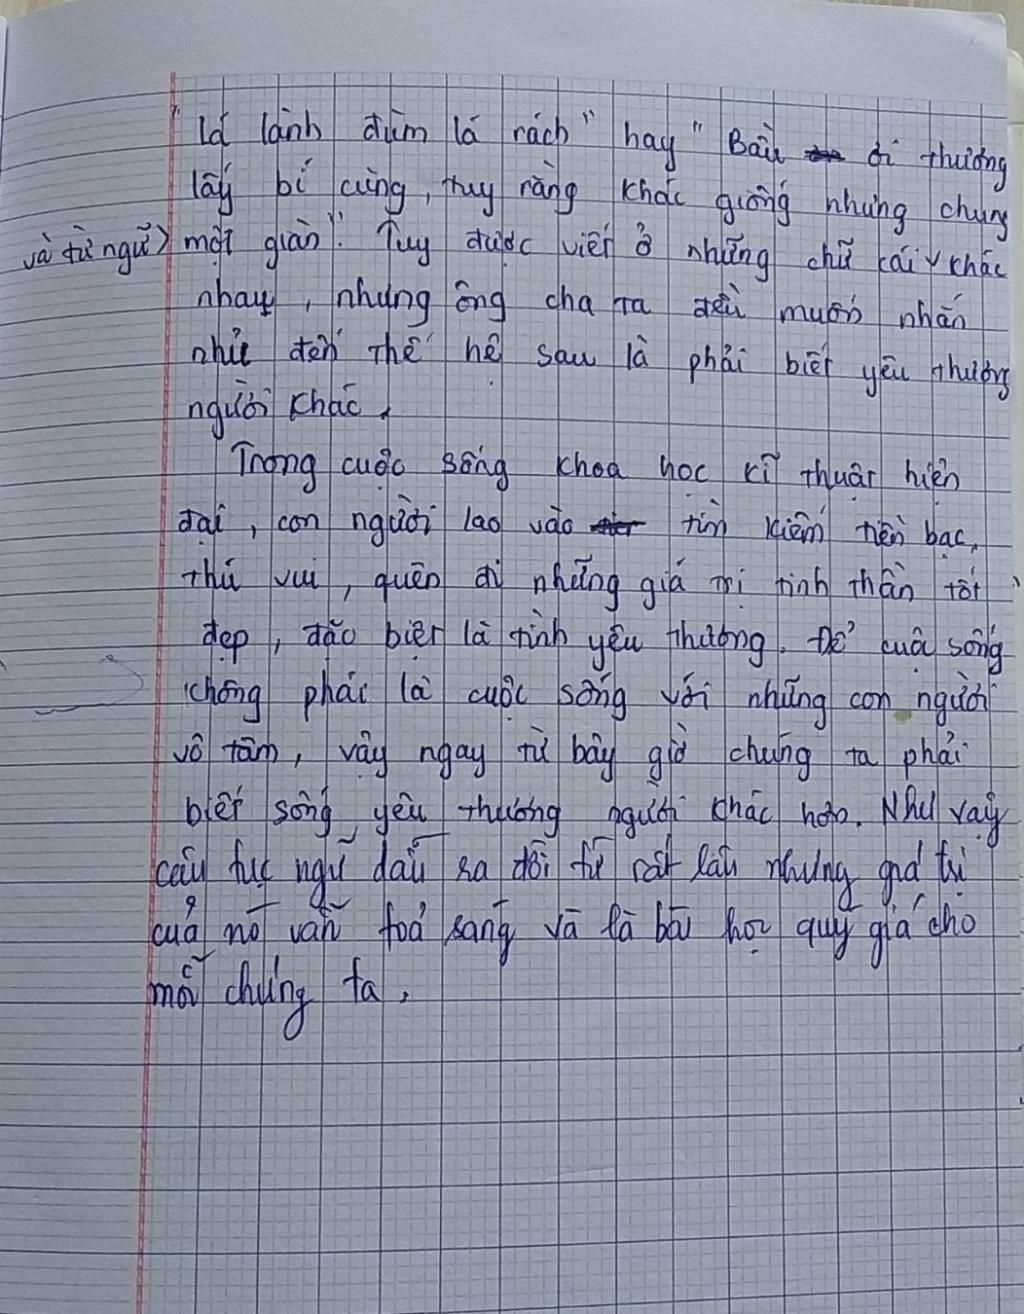 "Lá lành đùm lá rách" hay "Bầu ơi thương
lấy bí cùng, tuy rằng khác giống nhưng chung
một giàn". Tuy được viết ở những chữ cái và từ ngữ khác
nhau, nhưng ông cha ta đều muốn nhắn
nhủ đến thế hệ sau là phải biết yêu thương
người khác.
Trong cuộc sống khoa học kĩ thuật hiện
đại, con người lao vào tìm kiếm tiền bạc,
thú vui, quên đi những giá trị tinh thần tốt
đẹp, đặc biệt là tình yêu thương. Để cuộc sống
không phải là cuộc sống với những con người
vô tâm, vậy ngay từ bây giờ chúng ta phải
biết sống yêu thương người khác hơn. Như vậy
câu tục ngữ dẫu ra đời từ rất lâu nhưng giá trị
của nó vẫn toả sáng và là bài học quý giá cho
mỗi chúng ta.